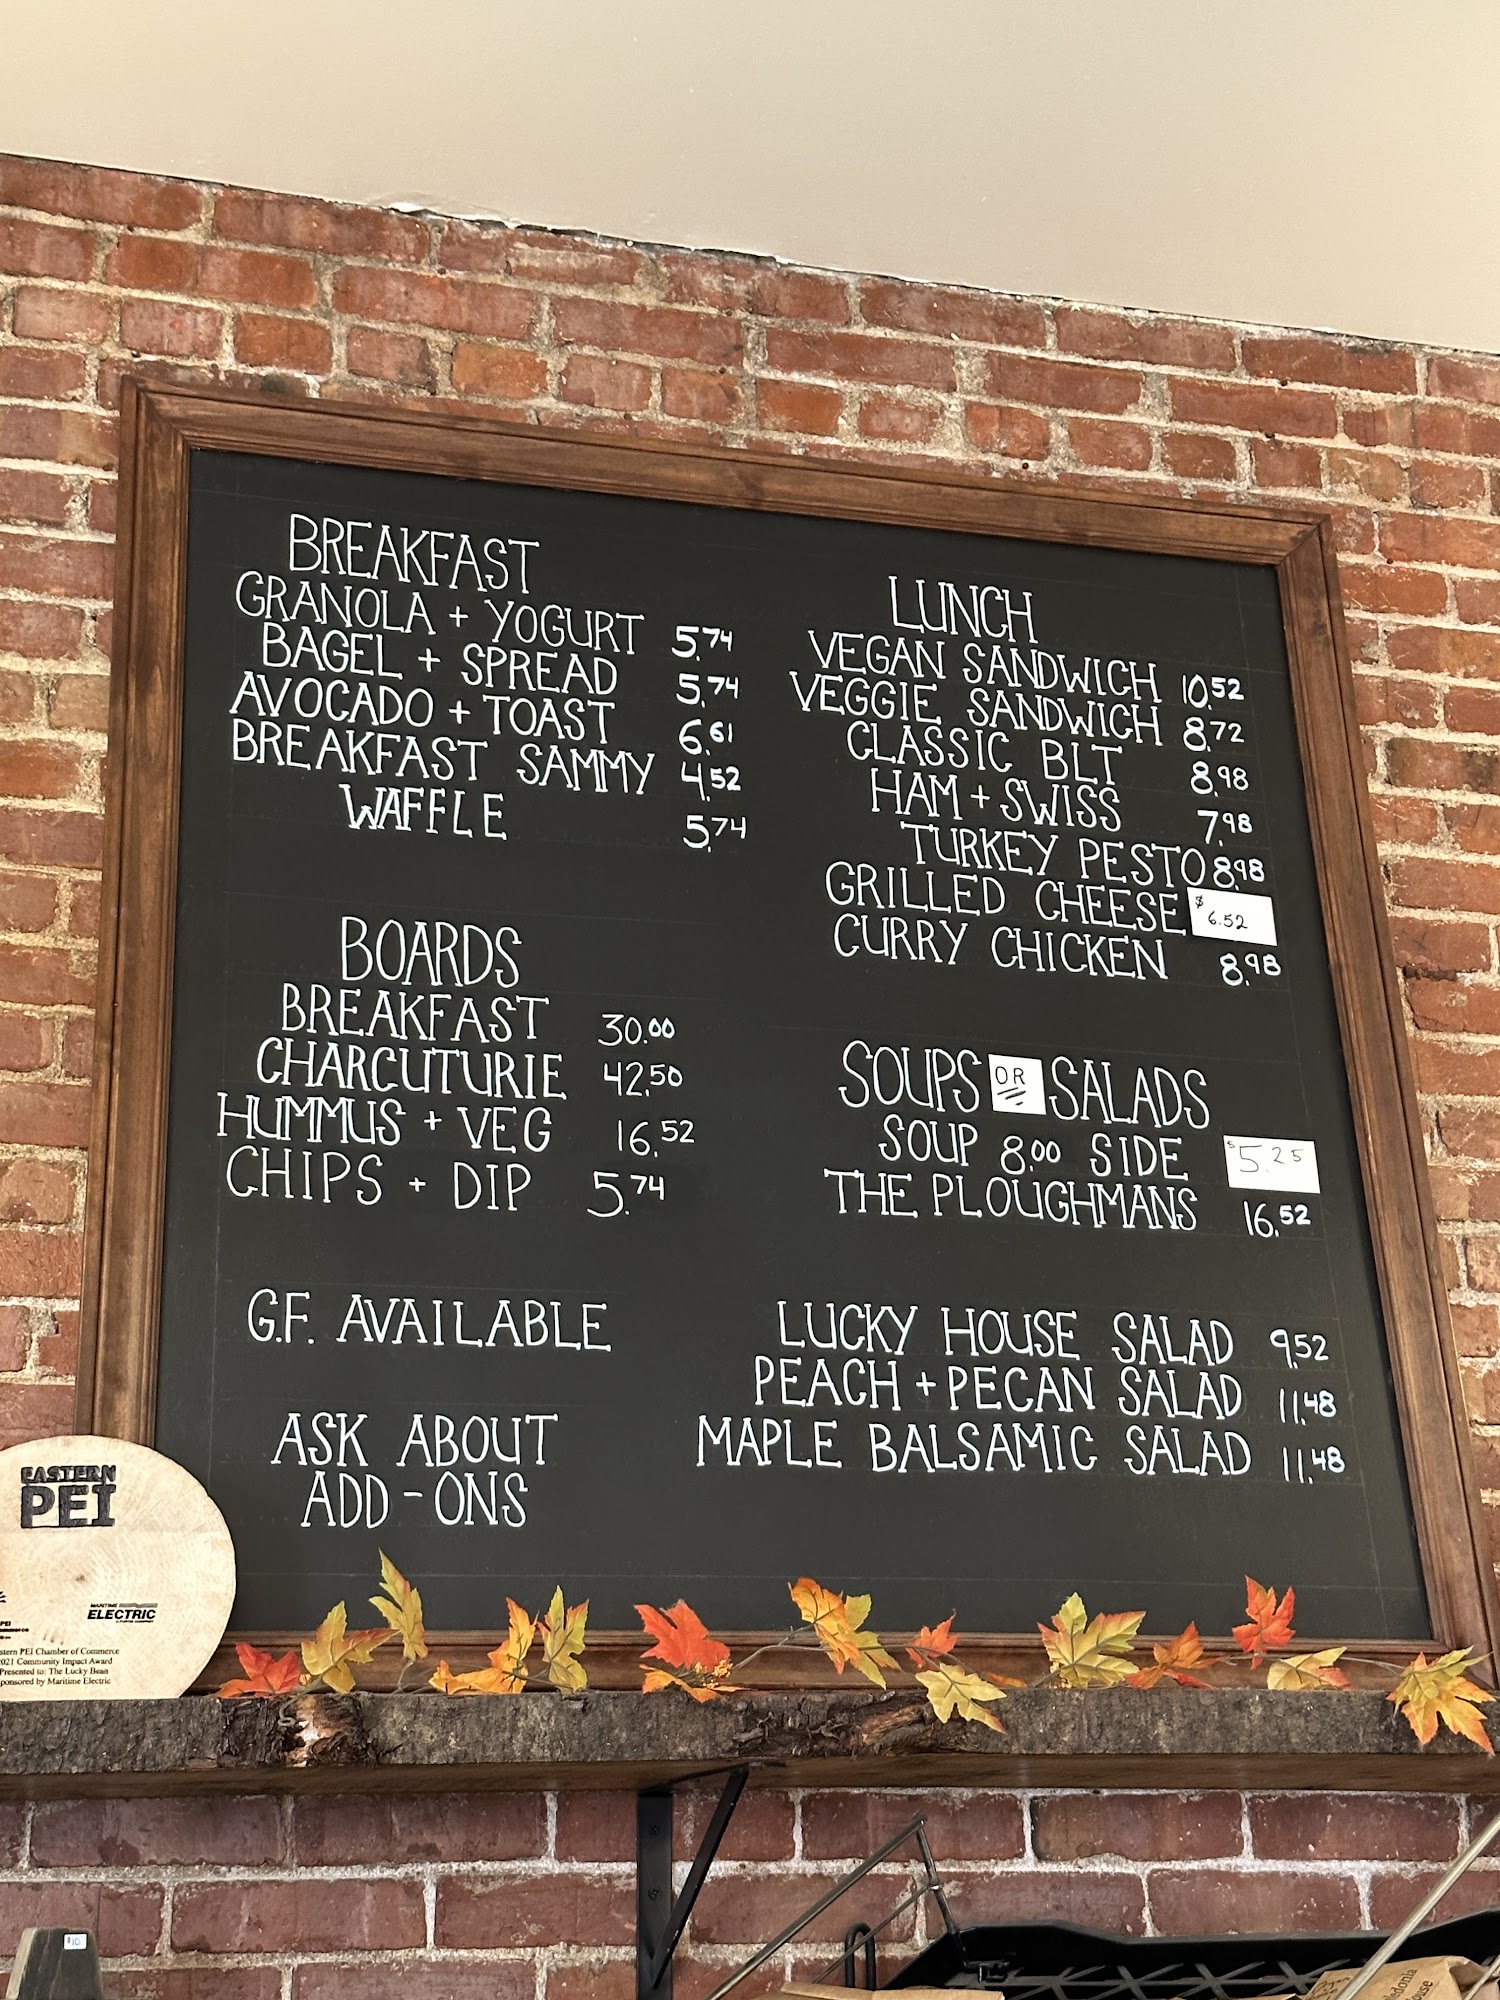 BREAKFAST
GRANOLA + YOGURT 5.74
BAGEL + SPREAD 5.74
AVOCADO + TOAST 6.61
BREAKFAST SAMMY 4.52
WAFFLE 5.74
BOARDS
BREAKFAST 30.00
CHARCUTURIE 42.50
HUMMUS + VEG 16.52
CHIPS + DIP 5.74
G.F. AVAILABLE
ASK ABOUT
ADD-ONS
LUNCH
VEGAN SANDWICH 10.52
VEGGIE SANDWICH 8.72
CLASSIC BLT 8.98
HAM + SWISS 7.98
TURKEY PESTO 8.98
GRILLED CHEESE $6.52
CURRY CHICKEN 8.98
SOUPS OR SALADS
SOUP 8.00 SIDE $5.25
THE PLOUGHMANS 16.52
LUCKY HOUSE SALAD 9.52
PEACH + PECAN SALAD 11.48
MAPLE BALSAMIC SALAD 11.48
EASTERN
PEI
MARITIME
ELECTRIC
PEI Chamber of Commerce
Community Impact Award
Presented to: The Lucky Bean
sponsored by Maritime Electric
$10